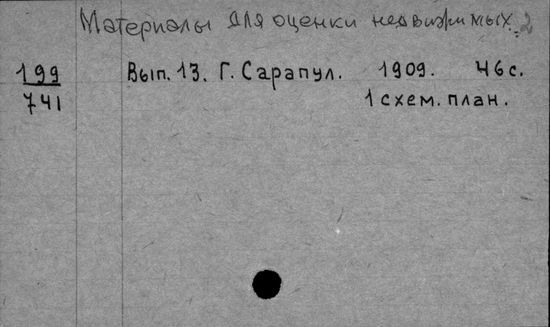 Материалы для оценки недвижимых. 2
199 Вып. 13. Г. Сарапул. 1909. 46 с.
741 1 схем. план.